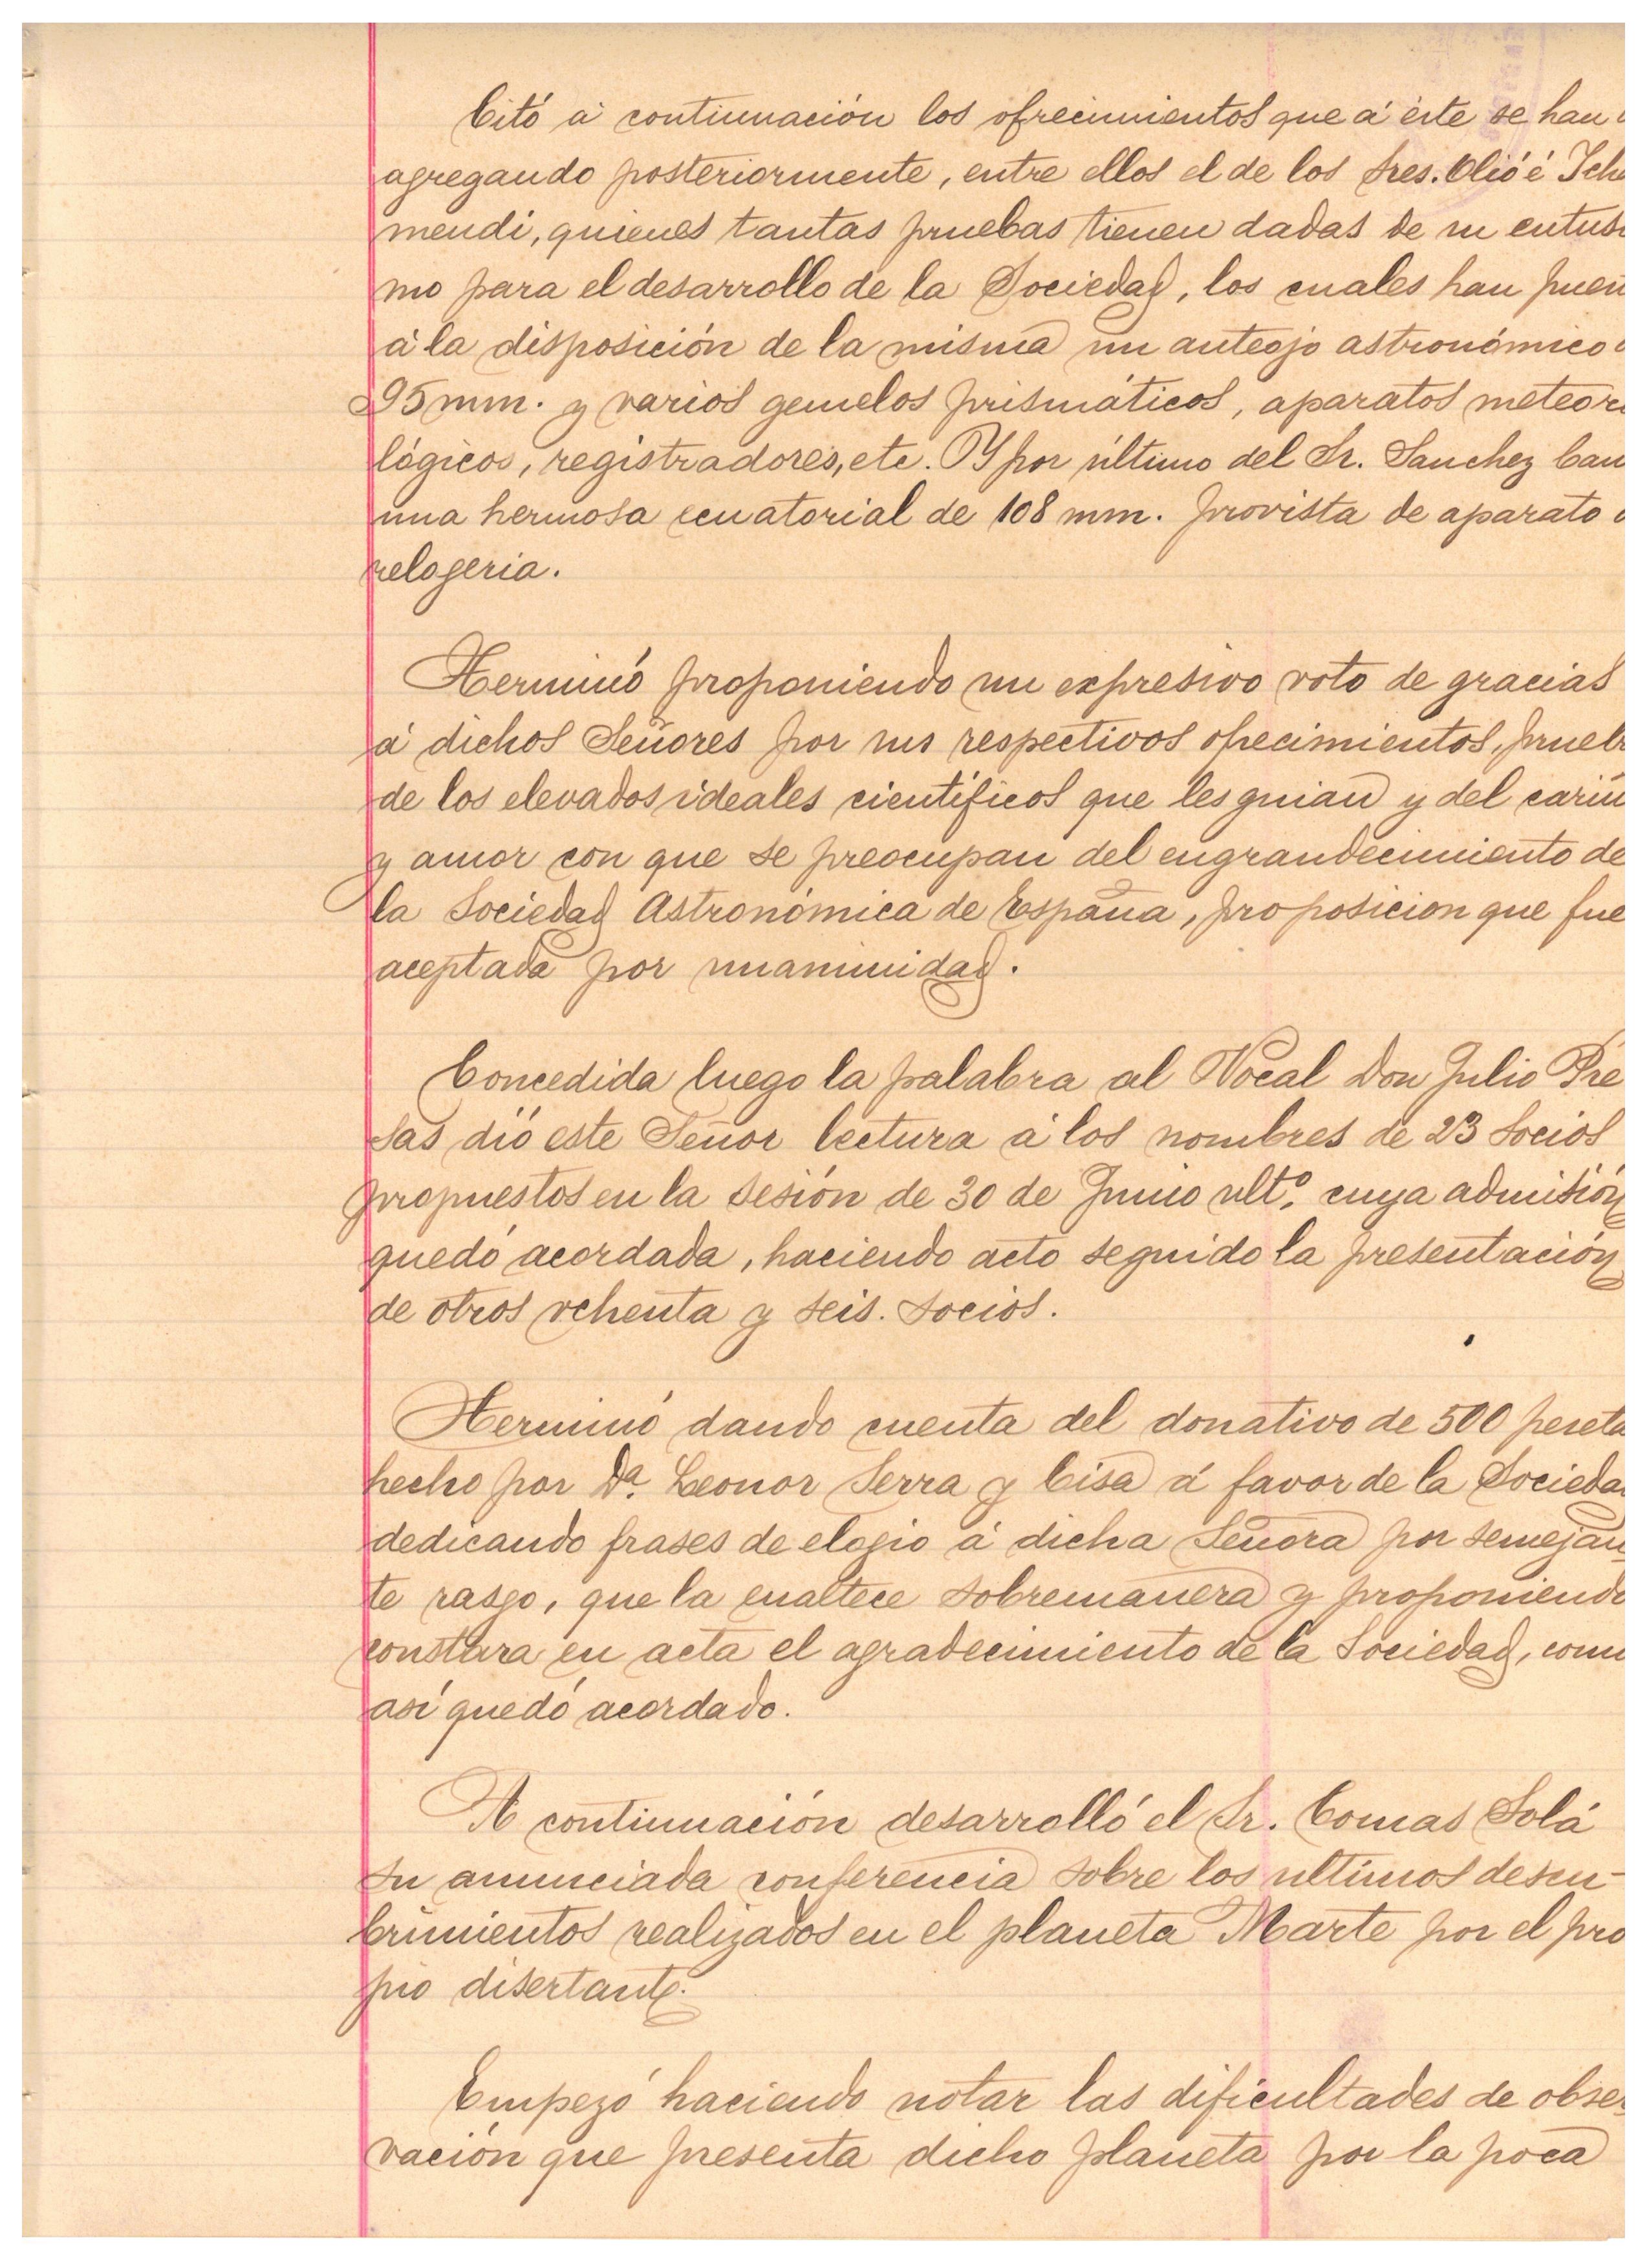 Citó á continuación los ofrecimientos que á éste se han
agregando posteriormente, entre ellos el de los Sres. Olió é Ich
mendi, quienes tantas pruebas tienen dadas de su entusi
mo para el desarrollo de la Sociedad, los cuales han pues
á la disposición de la misma un anteojo astronómico
95 mm. y varios gemelos prismáticos, aparatos meteor
lógicos, registradores, etc. Y por último del Sr. Sanchez
una hermosa ecuatorial de 108 mm. provista de aparato
relogeria.
Terminó proponiendo un expresivo voto de gracias
á dichos Señores por sus respectivos ofrecimientos, prueb
de los elevados ideales científicos que les guian y del cariñ
y amor con que se preocupan del engrandecimiento de
la Sociedad Astronómica de España, proposicion que fue
aceptada por unanimidad.
Concedida luego la palabra al Vocal Don Julio Pre
sas dió este Señor lectura á los nombres de 23 socios
propuestos en la sesión de 30 de Junio ultº. cuya admisión
quedó acordada, haciendo acto seguido la presentación
de otros ochenta y seis. socios.
Terminó dando cuenta del donativo de 500 peseta
hecho por Dª. Leonor Serra y Cisa á favor de la Socieda
dedicando frases de elogio á dicha Señora por semejan
te rasgo, que la enaltece sobremanera y proponiendo
constara en acta el agradecimiento de la Sociedad, com
así quedó acordado.
A continuación desarrolló el Sr. Comas Solá
su anunciada conferencia sobre los ultimos descu-
brimientos realizados en el planeta Marte por el pro
pio disertante.
Empezó haciendo notar las dificultades de obser
vación que presenta dicho planeta por la poca